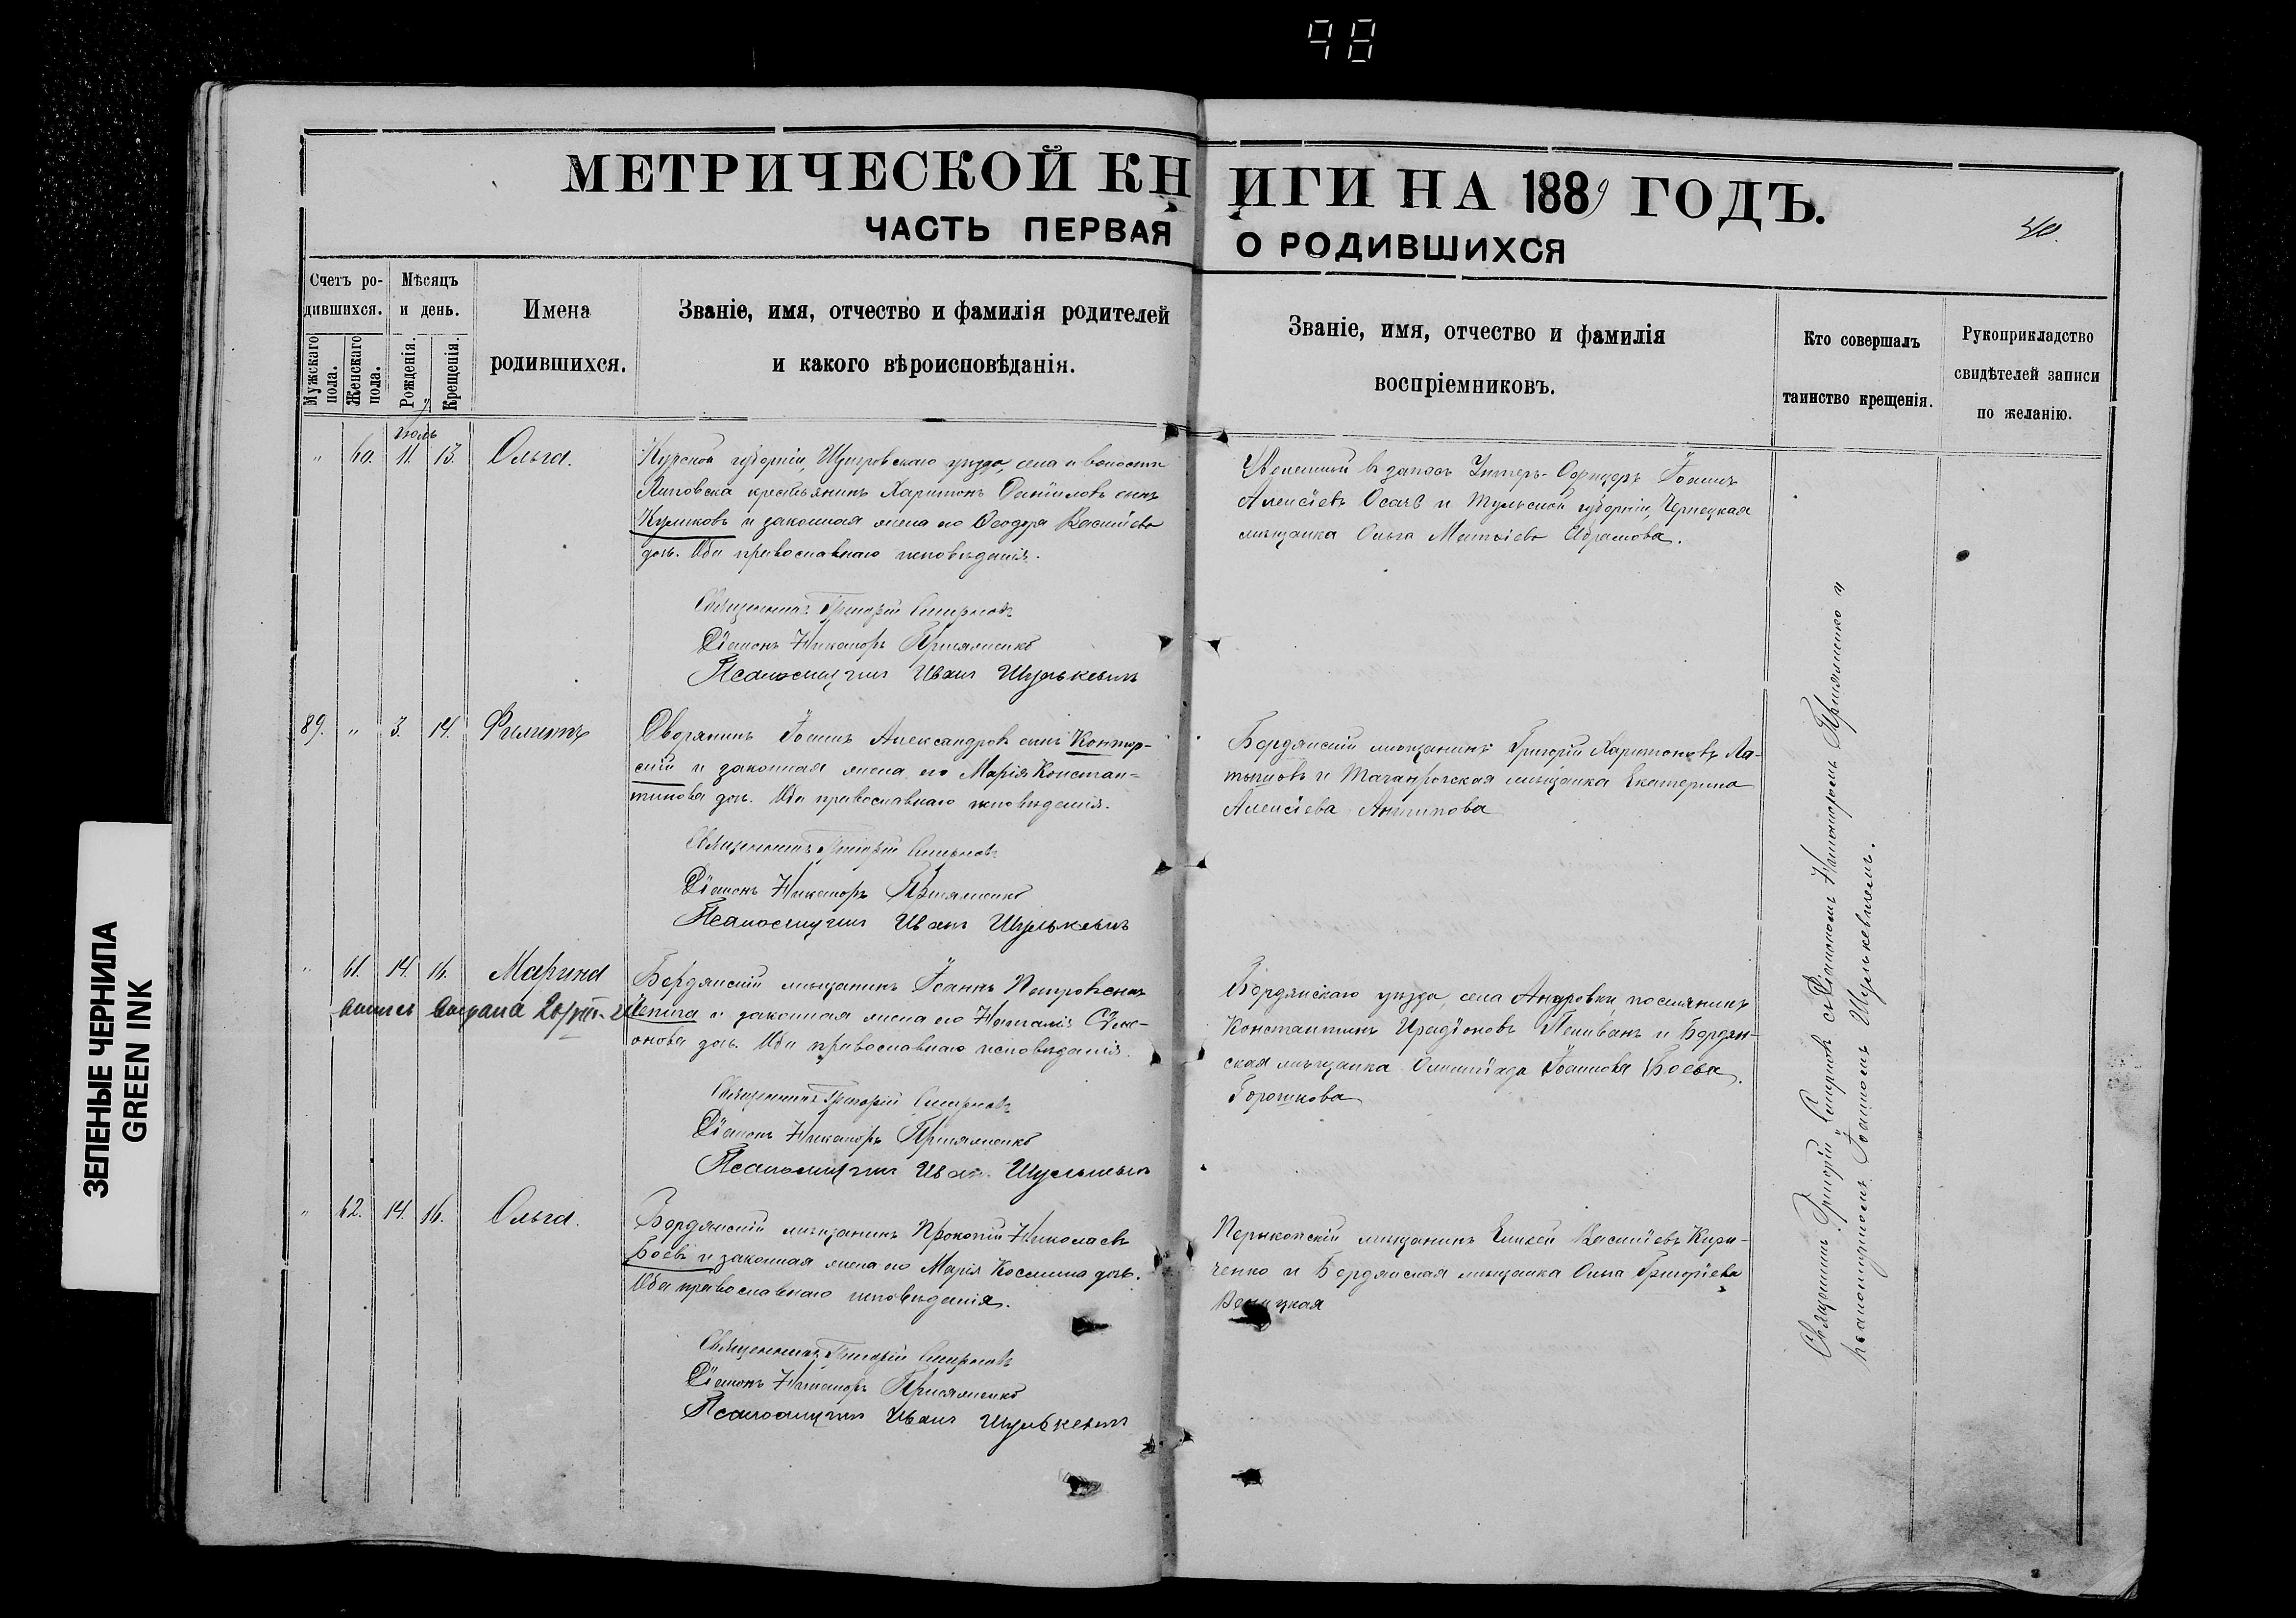 98
МЕТРИЧЕСКОЙ КНИГИ НА 1889 ГОДЪ.
ЧАСТЬ ПЕРВАЯ О РОДИВШИХСЯ
40.
Счетъ родившихся.
Мужскаго пола.
Женскаго пола.
Мѣсяцъ и день.
Рожденія.
Крещенія.
Имена
родившихся.
Званіе, имя, отчество и фамилія родителей
и какого вѣроисповѣданія.
Званіе, имя, отчество и фамилія
воспріемниковъ.
Кто совершалъ
таинство крещенія.
Рукоприкладство
свидѣтелей записи
по желанію.
Июль
" 60. 11. 13. Ольга.
Курской губерніи, Щигровскаго уѣзда, села и волости
Липовска крестьянинъ Харитонъ Даниловъ сынъ
Куликовъ и законная жена его Ѳеодора Василіева
дочь. Оба православнаго исповѣданія.
Священникъ Григорій Смирновъ
Діаконъ Никаноръ Присяженко
Псаломщикъ Иванъ Шулькевичъ
въ запасъ Унтеръ-Офицеръ Іоаннъ
Алексіевъ и Тульской губерніи,
мѣщанка Ольга Абрамова.
89. " 3. 14. Филиппъ
Дворянинъ Іоаннъ Александровъ сынъ Контор-
скій и законная жена его Марія Констан-
тинова дочь. Оба православнаго исповѣданія.
Священникъ Григорій Смирновъ
Діаконъ Никаноръ Присяженко
Псаломщикъ Иванъ Шулькевичъ
Бердянскій мѣщанинъ Григорій Харитоновъ Ла-
и Таганрогская мѣщанка Екатерина
Алексіева Антипова
" 61. 14. 16. Марина
Бердянскій мѣщанинъ Іоаннъ Петровъ сынъ
и законная жена его Наталія
дочь. Оба православнаго исповѣданія.
Священникъ Григорій Смирновъ
Діаконъ Никаноръ Присяженко
Псаломщикъ Иванъ Шулькевичъ
Бердянскаго уѣзда, села Андровки, поселянинъ
Константинъ Иродіоновъ Пеливанъ и Бердян-
ская мѣщанка Олимпіада Іоаннова Боева
Горошкова
" 62. 14. 16. Ольга.
Бердянскій мѣщанинъ Прокопій Николаевъ
Боевъ и законная жена его Марія Космина дочь.
Оба православнаго исповѣданія.
Священникъ Григорій Смирновъ
Діаконъ Никаноръ Присяженко
Псаломщикъ Иванъ Шулькевичъ
Перекопскій мѣщанинъ Василіевъ Кири-
ченко и Бердянская мѣщанка Ольга Григоріева
Священникъ Григорій Смирновъ съ Діакономъ Никаноромъ Присяженко и
псаломщикомъ Іоанномъ Шулькевичемъ.
ЗЕЛЕНЫЕ ЧЕРНИЛА
GREEN INK